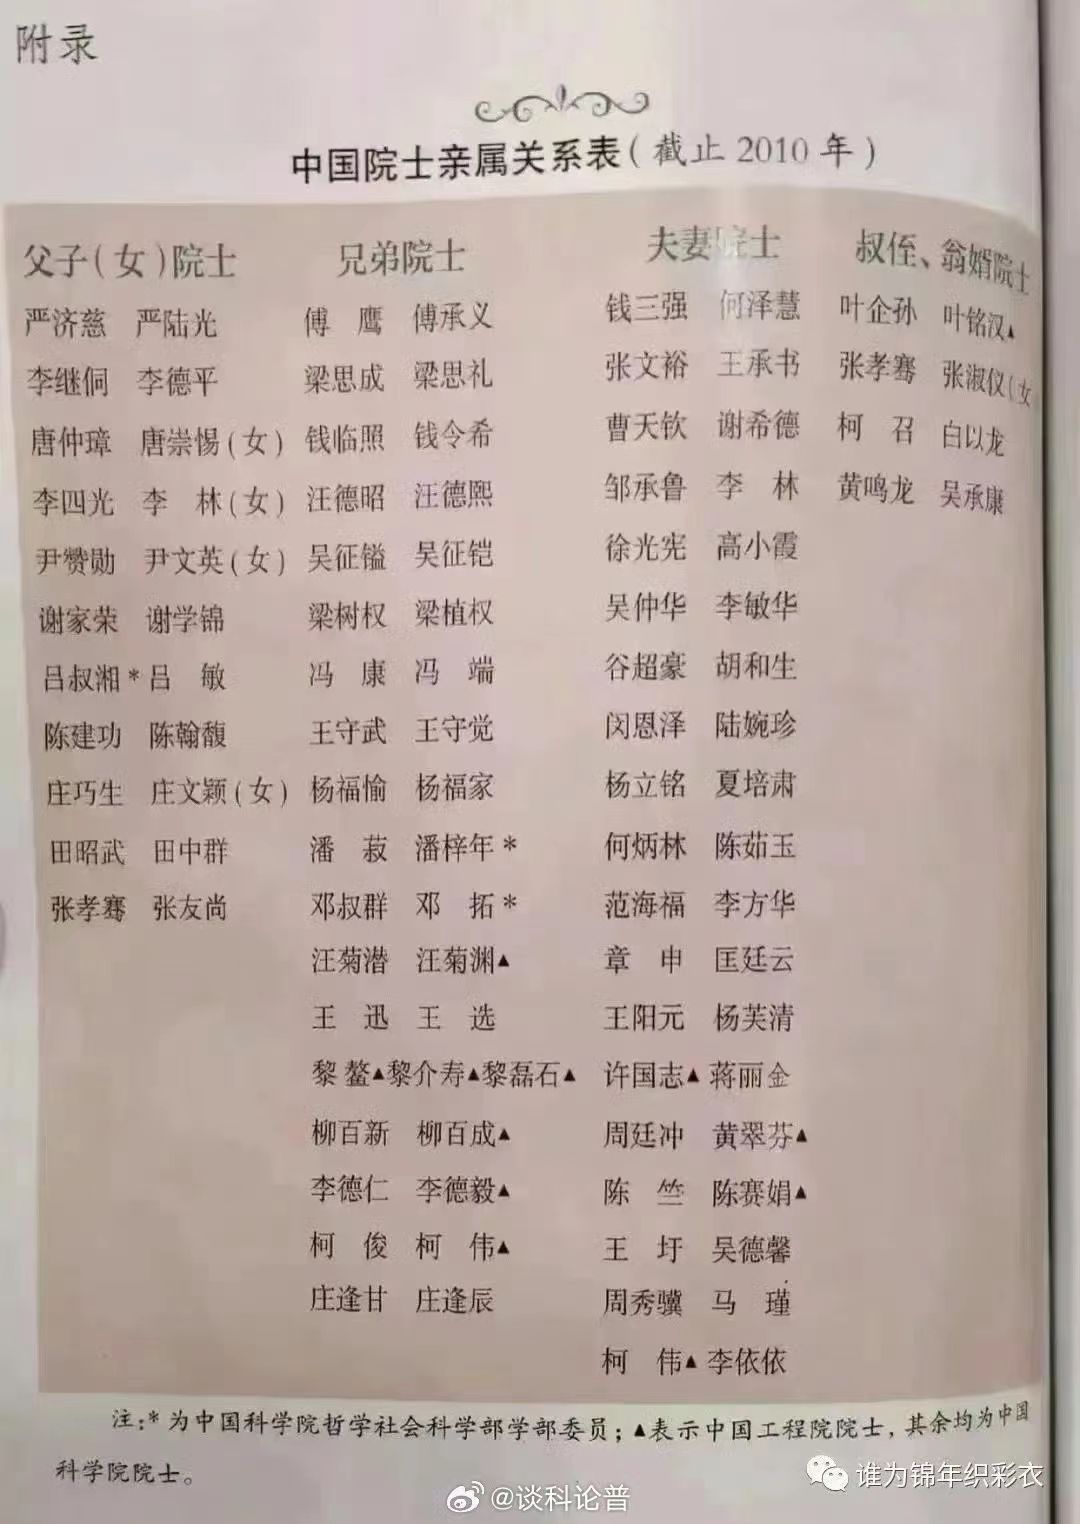 附录
中国院士亲属关系表(截止2010年)
父子(女)院士 兄弟院士 夫妻院士 叔侄、翁婿院士
严济慈 严陆光 傅鹰 傅承义 钱三强 何泽慧 叶企孙 叶铭汉▲
李继侗 李德平 梁思成 梁思礼 张文裕 王承书 张孝骞 张淑仪(女
唐仲璋 唐崇惕(女) 钱临照 钱令希 曹天钦 谢希德 柯召 白以龙
李四光 李林(女) 汪德昭 汪德熙 邹承鲁 李林 黄鸣龙 吴承康
尹赞勋 尹文英(女) 吴征镒 吴征铠 徐光宪 高小霞
谢家荣 谢学锦 梁树权 梁植权 吴仲华 李敏华
吕叔湘* 吕敏 冯康 冯端 谷超豪 胡和生
陈建功 陈翰馥 王守武 王守觉 闵恩泽 陆婉珍
庄巧生 庄文颖(女) 杨福愉 杨福家 杨立铭 夏培肃
田昭武 田中群 潘菽 潘梓年* 何炳林 陈茹玉
张孝骞 张友尚 邓叔群 邓拓* 范海福 李方华
汪菊潜 汪菊渊▲ 章申 匡廷云
王迅 王选 王阳元 杨芙清
黎鳌▲ 黎介寿▲ 黎磊石▲ 许国志▲ 蒋丽金
柳百新 柳百成▲ 周廷冲 黄翠芬▲
李德仁 李德毅▲ 陈竺 陈赛娟▲
柯俊 柯伟▲ 王圩 吴德馨
庄逢甘 庄逢辰 周秀骥 马瑾
柯伟▲ 李依依
注:*为中国科学院哲学社会科学部学部委员;▲表示中国工程院院士,其余均为中国
科学院院士。
谁为锦年织彩衣
@谈科论普